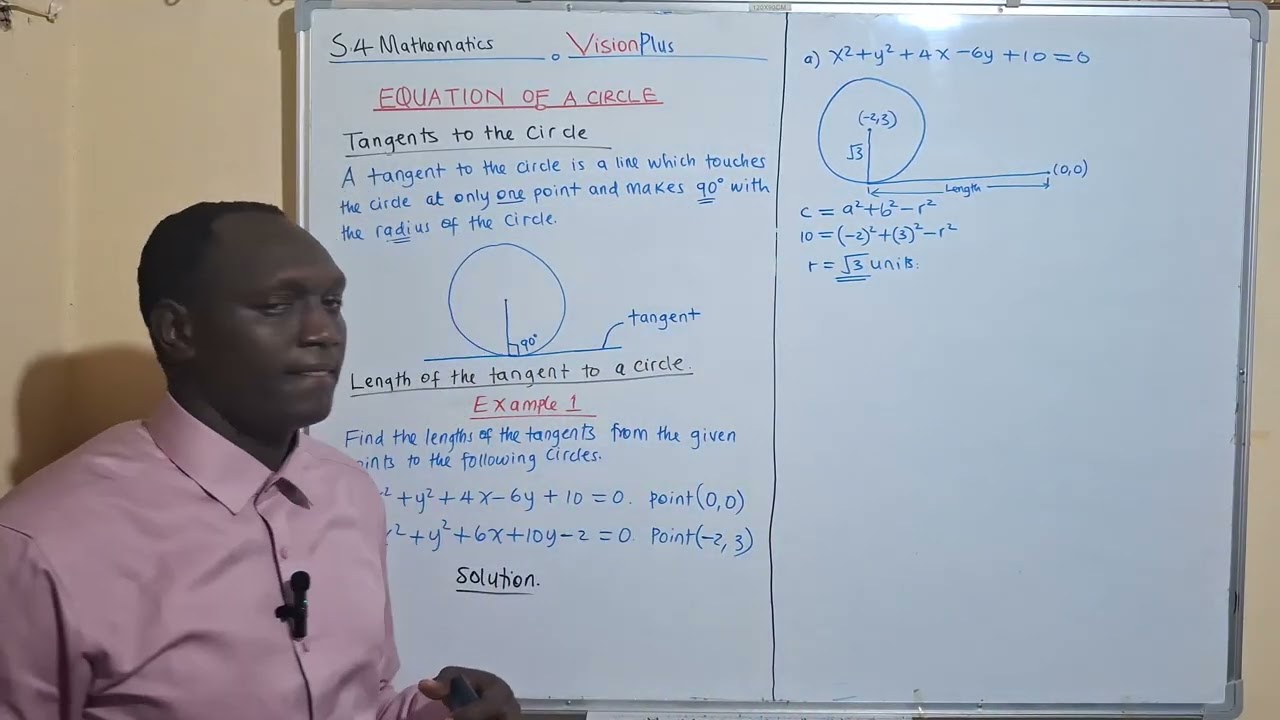 120X90CM
S.4 Mathematics VisionPlus
EQUATION OF A CIRCLE
Tangents to the Circle
A tangent to the circle is a line which touches
the circle at only one point and makes 90° with
the radius of the circle.
90°
tangent
Length of the tangent to a circle.
Example 1
Find the lengths of the tangents from the given
points to the following Circles.
² + y² + 4x - 6y + 10 = 0. point (0,0)
x² + y² + 6x + 10y - 2 = 0. Point (-2, 3)
Solution.
a) x² + y² + 4x - 6y + 10 = 0
(-2,3)
√3
(0,0)
Length
c = a² + b² - r²
10 = (-2)² + (3)² - r²
r = √3 units.